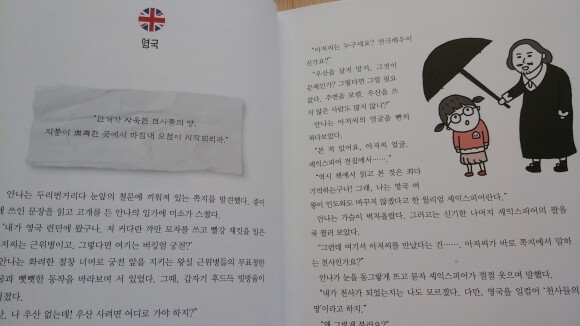 영국
"안개가 자욱한 천사들의 땅,
지붕이 뾰족한 곳에서 마침내 모험이 시작되리라."
안나는 두리번거리다 눈앞의 철문에 끼워져 있는 쪽지를 발견했다. 종이
에 쓰인 문장을 읽고 고개를 든 안나의 입가에 미소가 스쳤다.
"내가 영국 런던에 왔구나. 저 커다란 까만 모자를 쓰고 빨강 재킷을 입은
아저씨는 근위병이고, 그렇다면 여기는 버킹엄 궁전?"
안나는 화려한 철창 너머로 궁전 앞을 지키는 왕실 근위병들의 무표정한
얼굴과 뻣뻣한 동작을 바라보며 서 있었다. 그때, 갑자기 후드득 빗방울이
떨어졌다.
나 우산 없는데! 우산 사려면 어디로 가야 하지?"
"아저씨는 누구세요? 연극배우이
신가요?"
"우산을 살지 말지, 그것이
문제인가? 그렇다면 그럴 필요
없다. 주변을 보렴. 우산을 쓰
지 않은 사람도 많지 않니?"
안나는 아저씨의 얼굴을 빤히
쳐다보았다.
"본 적 있어요, 아저씨 얼굴.
셰익스피어 전집에서……."
"역시 책에서 읽고 본 것은 죄다
기억하는구나! 그래, 나는 영국 여
왕이 인도와도 바꾸지 않겠다고 한 윌리엄 셰익스피어란다."
안나는 가슴이 벅차올랐다. 그러고는 신기한 나머지 셰익스피어의 팔을
쿡 찔러 보았다.
"그런데 여기서 아저씨를 만났다는 건……, 아저씨가 바로 쪽지에서 말하
는 천사인가요?"
안나가 눈을 동그랗게 뜨고 묻자 셰익스피어가 껄껄 웃으며 말했다.
"내가 천사가 되었는지는 나도 모르겠다. 다만, 영국을 일컬어 '천사들의
땅'이라고 하지."
"왜 그렇게 불러요?"